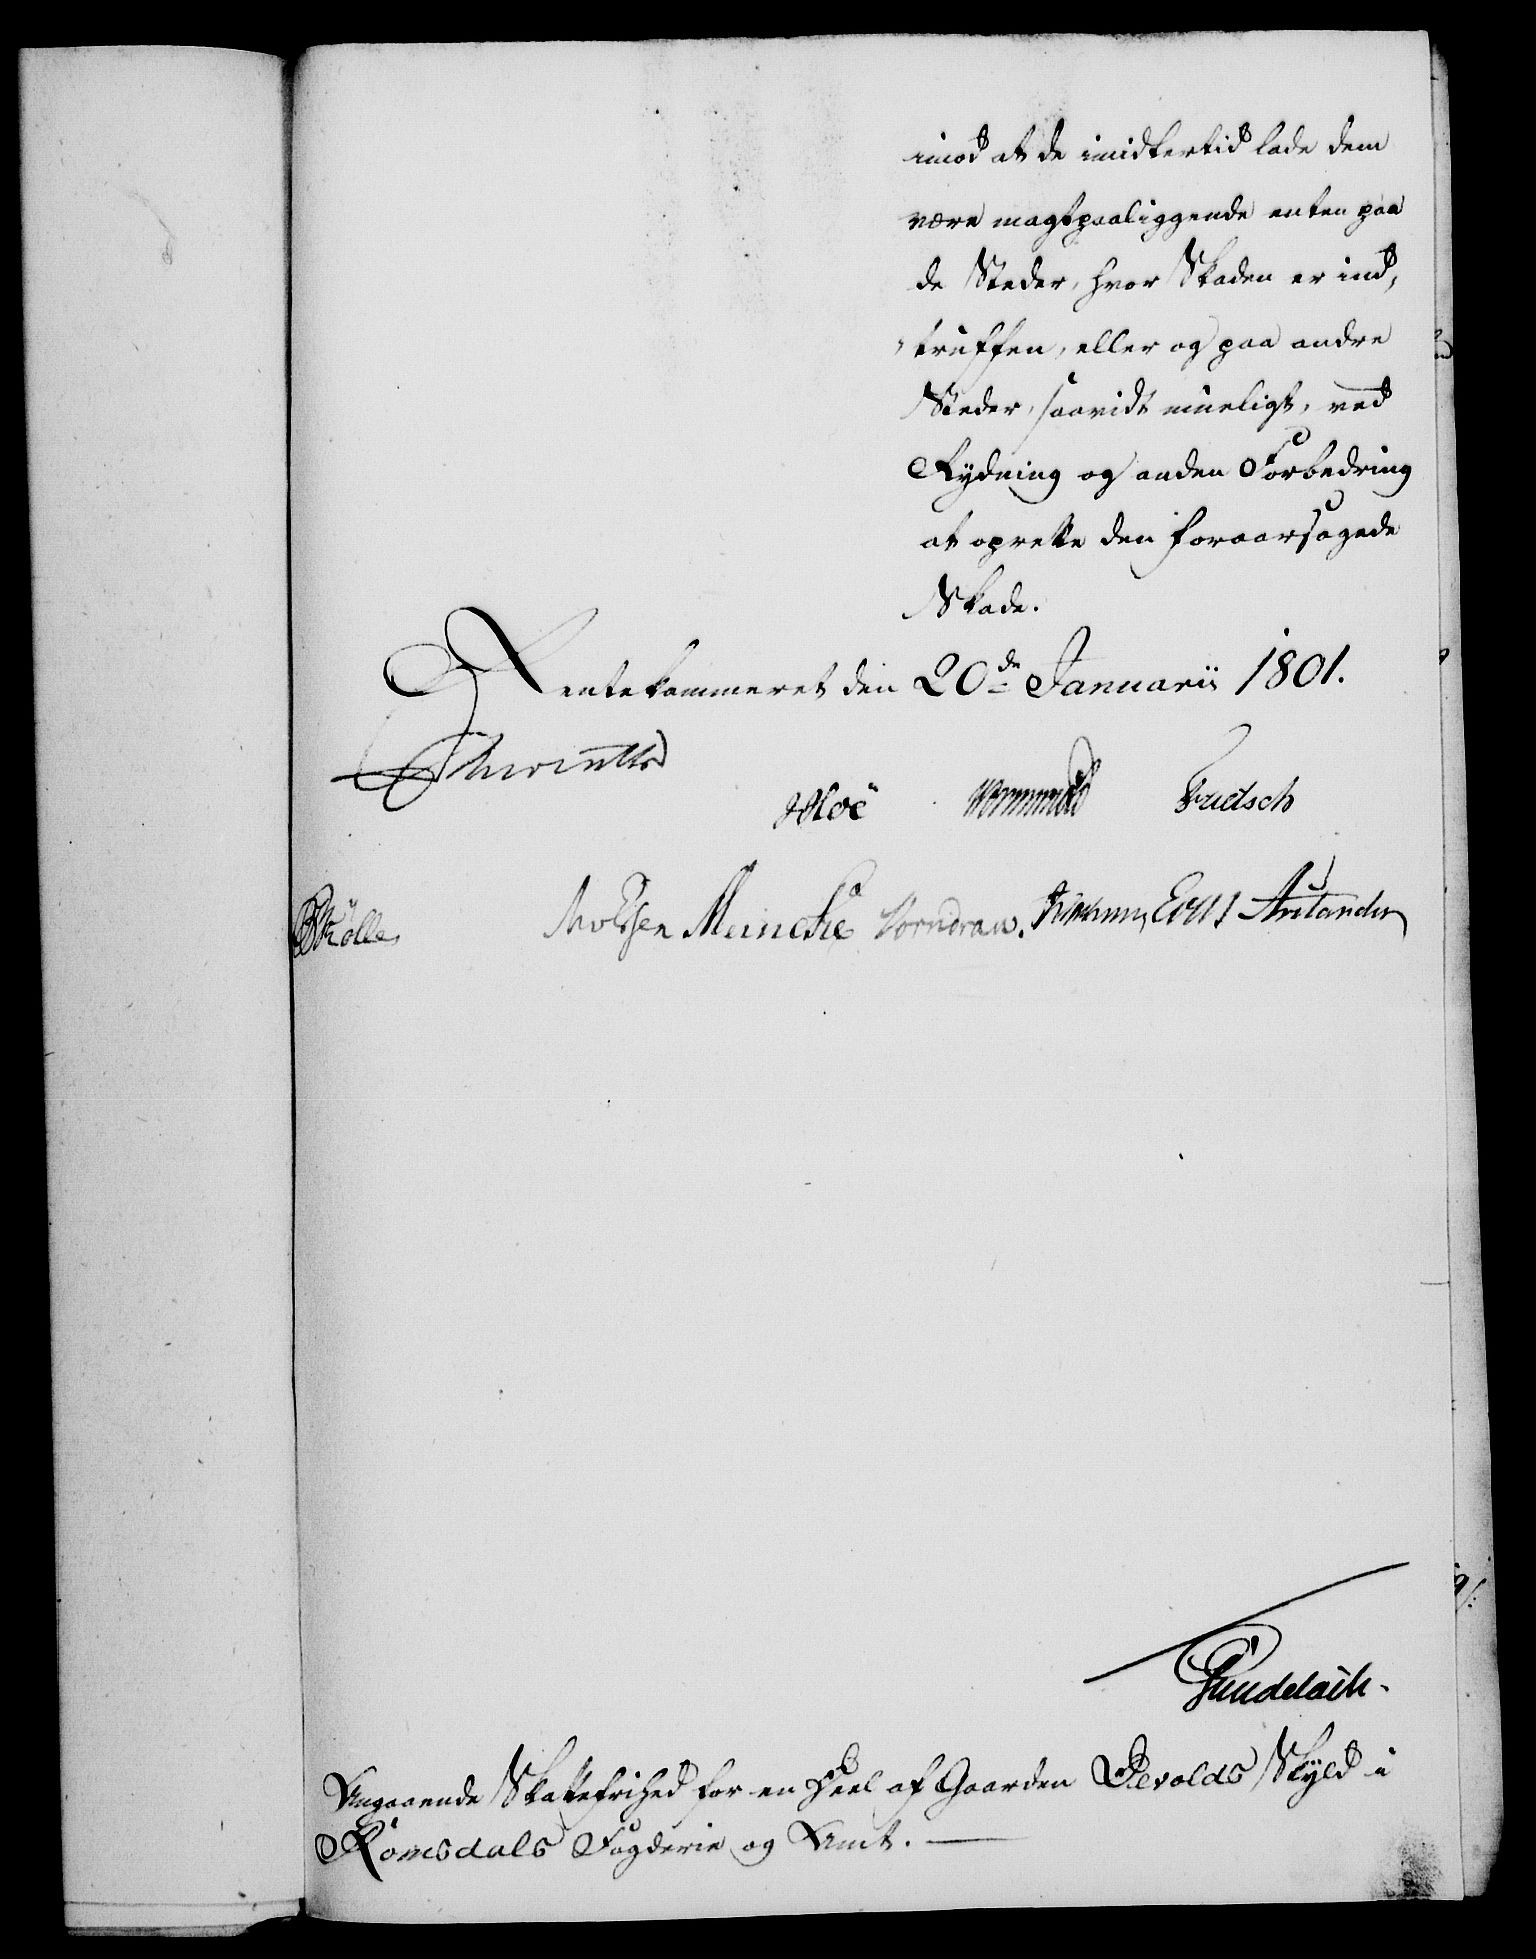 imod at de imidlertid lade dem
være magtpaaliggende enten paa
de Steder, hvor Skaden er ind-
truffen, eller og paa andre
Steder, saavidt mueligt, ved
Rydning og anden Forbedring
at oprette den foraarsagede
Skade.
Rentekammeret den 20de Januarii 1801.
Hoë Wormskiold Frietsch
Rølle Knudsen Meincke Vorndran
Gundelach.
Angaaende Skattefrihed for en Deel af Gaarden Devolds Skyld i
Romsdals Fogderie og Amt.